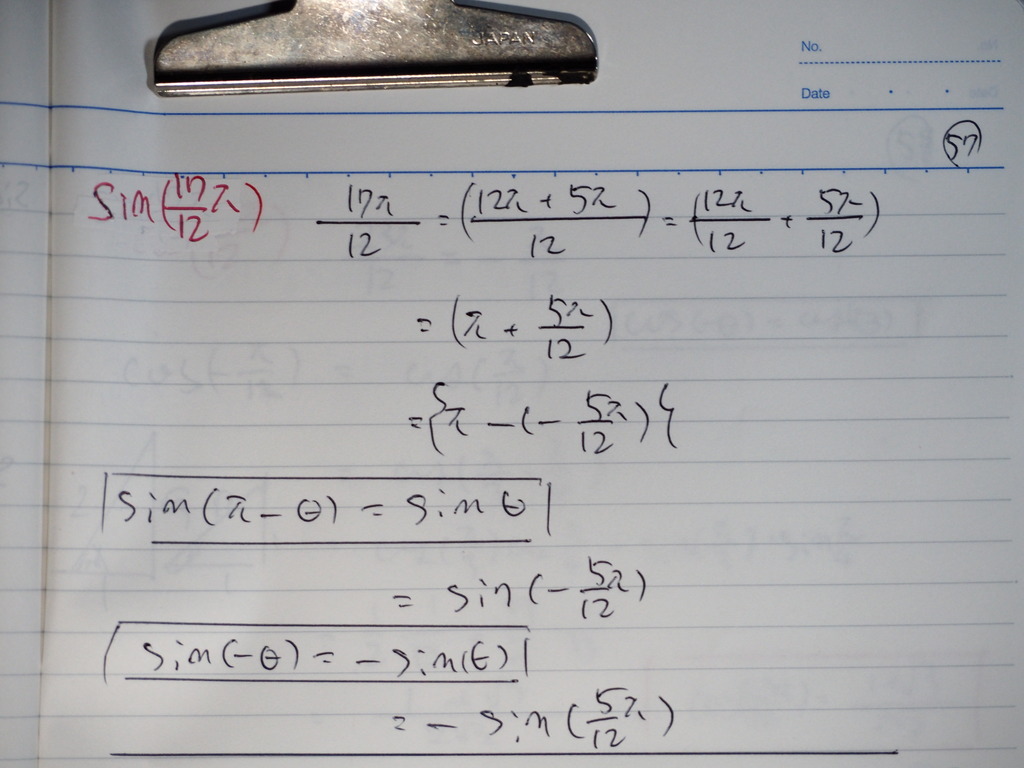 JAPAN
No.
Date
57
Sin(17/12 π) 17π/12 = (12π + 5π / 12) = (12π/12 + 5π/12)
= (π + 5π/12)
= {π - (- 5π/12)}
sin(π - θ) = sin θ
= sin(- 5π/12)
sin(-θ) = - sin(θ)
= - sin(5/12 π)